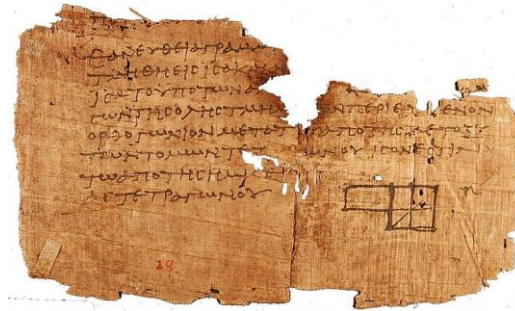 ΕΑΝ ΕΥΘΕΙΑ ΓΡΑΜΜ
ΤΜΗΘΗ ΕΙΣ ΙΣΑ Κ
ΙΣΑ ΤΟ ΥΠΟ ΤΩΝ Α
ΣΩΝ ΤΗΣ ΟΛΗΣ ΤΜΗ ΩΝ ΠΕΡΙΕΧΟΜΕΝΟΝ
ΟΡΘΟΓΩΝΙΟΝ ΜΕΤΑ ΤΟΥ ΑΠΟ ΤΗΣ ΜΕΤΟΞΥ
ΤΩΝ ΤΟΜΩΝ ΤΕΤ ΩΝΟΥ ΙΣΟΝ ΕΣΤΙΝ
ΤΩ ΑΠΟ ΤΗΣ ΗΜΙΣΕΙ
ΤΕΤΡΑΓΩΝΟΥ
29